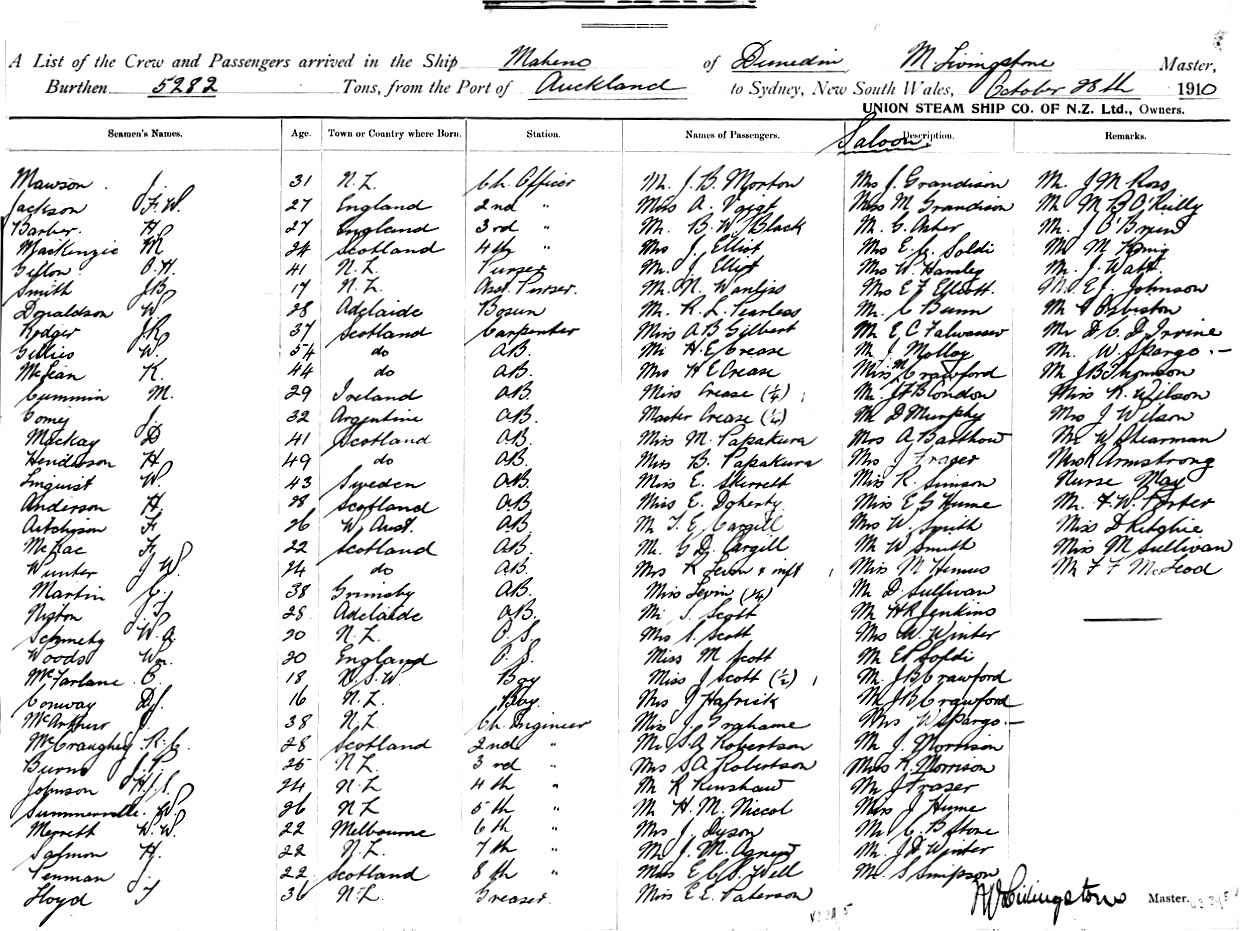 A List of the Crew and Passengers arrived in the Ship Maheno of Dunedin M Livingstone Master,
Burthen 5282 Tons, from the Port of Auckland to Sydney, New South Wales, October 28th 1910
UNION STEAM SHIP CO. OF N.Z. Ltd., Owners.
Seamen's Names. Age. Town or Country where Born. Station. Names of Passengers. Saloon Description. Remarks.
Mawson J. 31 N.Z. Ch. Officer Mr. J. B. Morton Mrs J. Grandison Mr. J M Ross
Jackson F. W. 27 England 2nd " Miss A. Voigt Miss M Grandison Mr M B O'Reilly
Barber H. 27 England 3rd " Mr. B. W. Black Mr. G. Asher Mr. J O'Brien
Mackenzie M 24 Scotland 4th " Mrs J. Elliot Mrs E. G. Soldi Mr M König
41 N.Z. Purser Mr. J. Elliot Mrs W. Hamley Mr. J. Watt.
Smith J. B 17 N.Z. Asst. Purser. Mr. N. Wanliss Mrs E F Elliott. E. J. Johnson
Donaldson W. 28 Adelaide Bosun Mr. R. L. Fearless Mr. C Bunn Mr Osbiston
Rodger J. R 37 Scotland Carpenter Miss A B Gilbert Mr E. C. Falwasser Mr D. C. D. Irvine
Gillies W. 54 do A.B. Mr H. E. Crease Mr J. Molloy Mr. W. Spargo. -
McLean K. 44 do A.B. Mrs H E Crease Miss M Crawford Mr J. B. Thomson
Cummin M. 29 Ireland A.B. Miss Crease (½) Mr. J. F. B. London Miss K. Wilson
Comey J. 32 Argentine A.B. Master Crease (½) Mr D Murphy Mrs J Wilson
Mackay D 41 Scotland A.B. Miss M. Papakura Mrs A Barthow Mr W Shearman
Henderson H 49 do A.B. Miss B. Papakura Mrs J Frazer Mrs R Armstrong
Linquist W. 43 Sweden A.B. Miss E. Skerrett Miss R. Simson Nurse May
Anderson H. 28 Scotland A.B. Miss E. Doherty Miss E G Hume Mr. H. W. Porter
Aitchison F. 26 W. Aust. A.B. Mr T. E. Cargill Mrs W. Smith Miss D Ritchie
McRae F. 22 Scotland A.B. Mr. G. D. Cargill Mr W Smith Miss M Sullivan
Wunter J W. 24 do A.B. Mrs R Levin & inft Miss M Himus Mr F F McLeod
Martin C. 38 Grimsby A.B. Miss Levin (¼) Mr D. Sullivan
28 Adelaide A.B. Mr S. Scott Mr H R Jenkins
W. A. 20 N.Z. O.S. Mrs S. Scott Mrs W. Winter
Woods Wm. 20 England O.S. Miss M Scott Mr E P Soldi
McFarlane C. 18 N.S.W. Boy Miss J Scott (½) Mr J B Crawford
Conway D. J. 16 N.Z. Boy. Mrs J Hafrick Mr J B Crawford
McArthur J. 38 N.Z. Ch. Engineer Miss J. Grahame Mrs W Spargo. -
McCraughey R. C. 28 Scotland 2nd " Mr S. A. Robertson Mr J. Morrison
Burns J. P. 25 N.Z. 3rd " Mrs S A Robertson Miss K. Morrison
Johnson H. J. S. 24 N.Z 4th " Mr R Renshaw Mr J Fraser
Summerville. W 26 N Z 5th " Mr H. M. Niccol Miss J Hume
W. W. 22 Melbourne 6th " Mrs J. Dyson Mr C. B Stone
Salmon H. 22 N.Z. 7th " Mr J. M. Agnew Mr. J D Winter
Penman J. 22 Scotland 8th " Miss E G S. Well Mr. S Simpson
Lloyd T 36 N.Z. Greaser. Miss E E. Paterson M Livingstone Master.